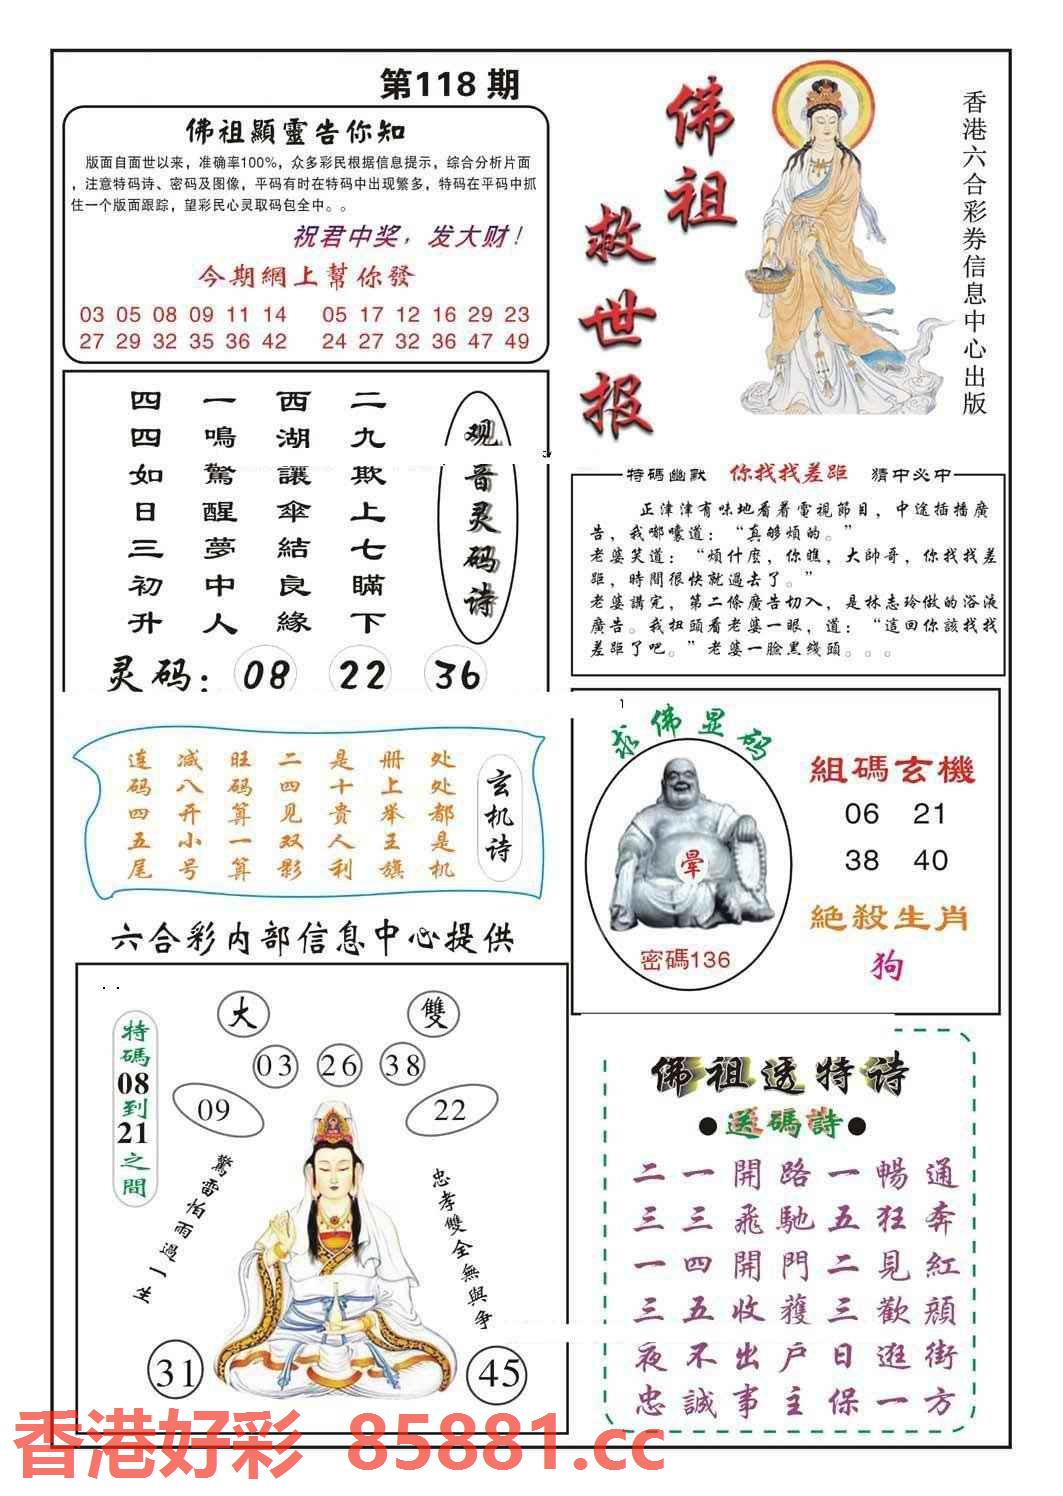 第118期
佛祖顯靈告你知
版面自面世以来，准确率100%，众多彩民根据信息提示，综合分析片面
，注意特码诗、密码及图像，平码有时在特码中出现繁多，特码在平码中抓
住一个版面跟踪，望彩民心灵取码包全中。。
祝君中奖，发大财！
今期網上幫你發
03 05 08 09 11 14
27 29 32 35 36 42
05 17 12 16 29 23
24 27 32 36 47 49
佛祖
救世报
香港六合彩券信息中心出版
观音灵码诗
二九欺上七瞞下
西湖讓傘結良緣
一鳴驚醒夢中人
四四如日三初升
灵码：08 22 36
特碼幽默 你找找差距 猜中必中
正津津有味地看着電視節目，中途插播廣
告，我嘟囔道：“真够煩的。”
老婆笑道：“煩什麼，你瞧，大帥哥，你找找差
距，時間很快就過去了。”
老婆講完，第二條廣告切入，是林志玲做的浴液
廣告。我扭頭看老婆一眼，道：“這回你該找找
差距了吧。”老婆一臉黑綫頭。。。
玄机诗
处处都是机
册上举王旗
是十贵人利
二四见双影
旺码算一算
减八开小号
连码四五尾
求佛显码
暈
密碼136
組碼玄機
06 21
38 40
絕殺生肖
狗
六合彩内部信息中心提供
特碼08到21之間
大
雙
03 26 38
09
22
驚雷怕雨過一生
忠孝雙全無與争
31
45
佛祖透特诗
●送碼詩●
二一開路一暢通
三三飛馳五狂奔
一四開門二見紅
三五收獲三歡顔
夜不出户日逛街
忠誠事主保一方
香港好彩 85881.cc